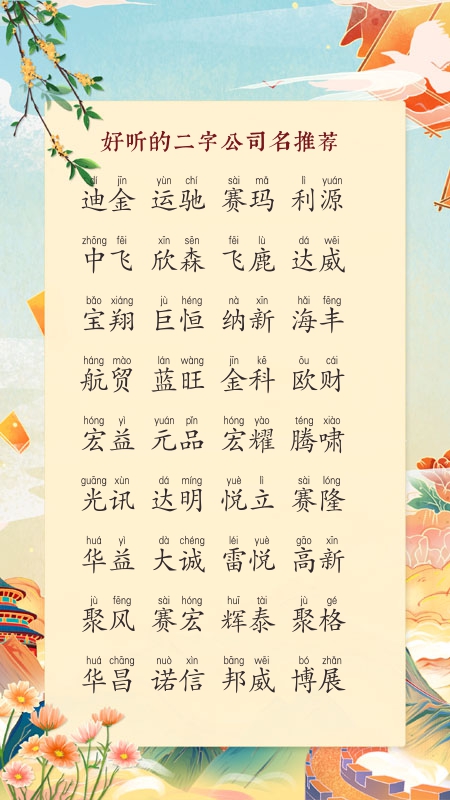 好听的二字公司名推荐
dí jīn yùn chí sài mǎ lì yuán
迪金 运驰 赛玛 利源
zhōng fēi xīn sēn fēi lù dá wēi
中飞 欣森 飞鹿 达威
bǎo xiáng jù héng nà xīn hǎi fēng
宝翔 巨恒 纳新 海丰
háng mào lán wàng jīn kē ōu cái
航贸 蓝旺 金科 欧财
hóng yì yuán pǐn hóng yào téng xiào
宏益 元品 宏耀 腾啸
guāng xùn dá míng yuè lì sài lóng
光讯 达明 悦立 赛隆
huá yì dà chéng léi yuè gāo xīn
华益 大诚 雷悦 高新
jù fēng sài hóng huī tài jù gé
聚风 赛宏 辉泰 聚格
huá chāng nuò xìn bāng wēi bó zhǎn
华昌 诺信 邦威 博展